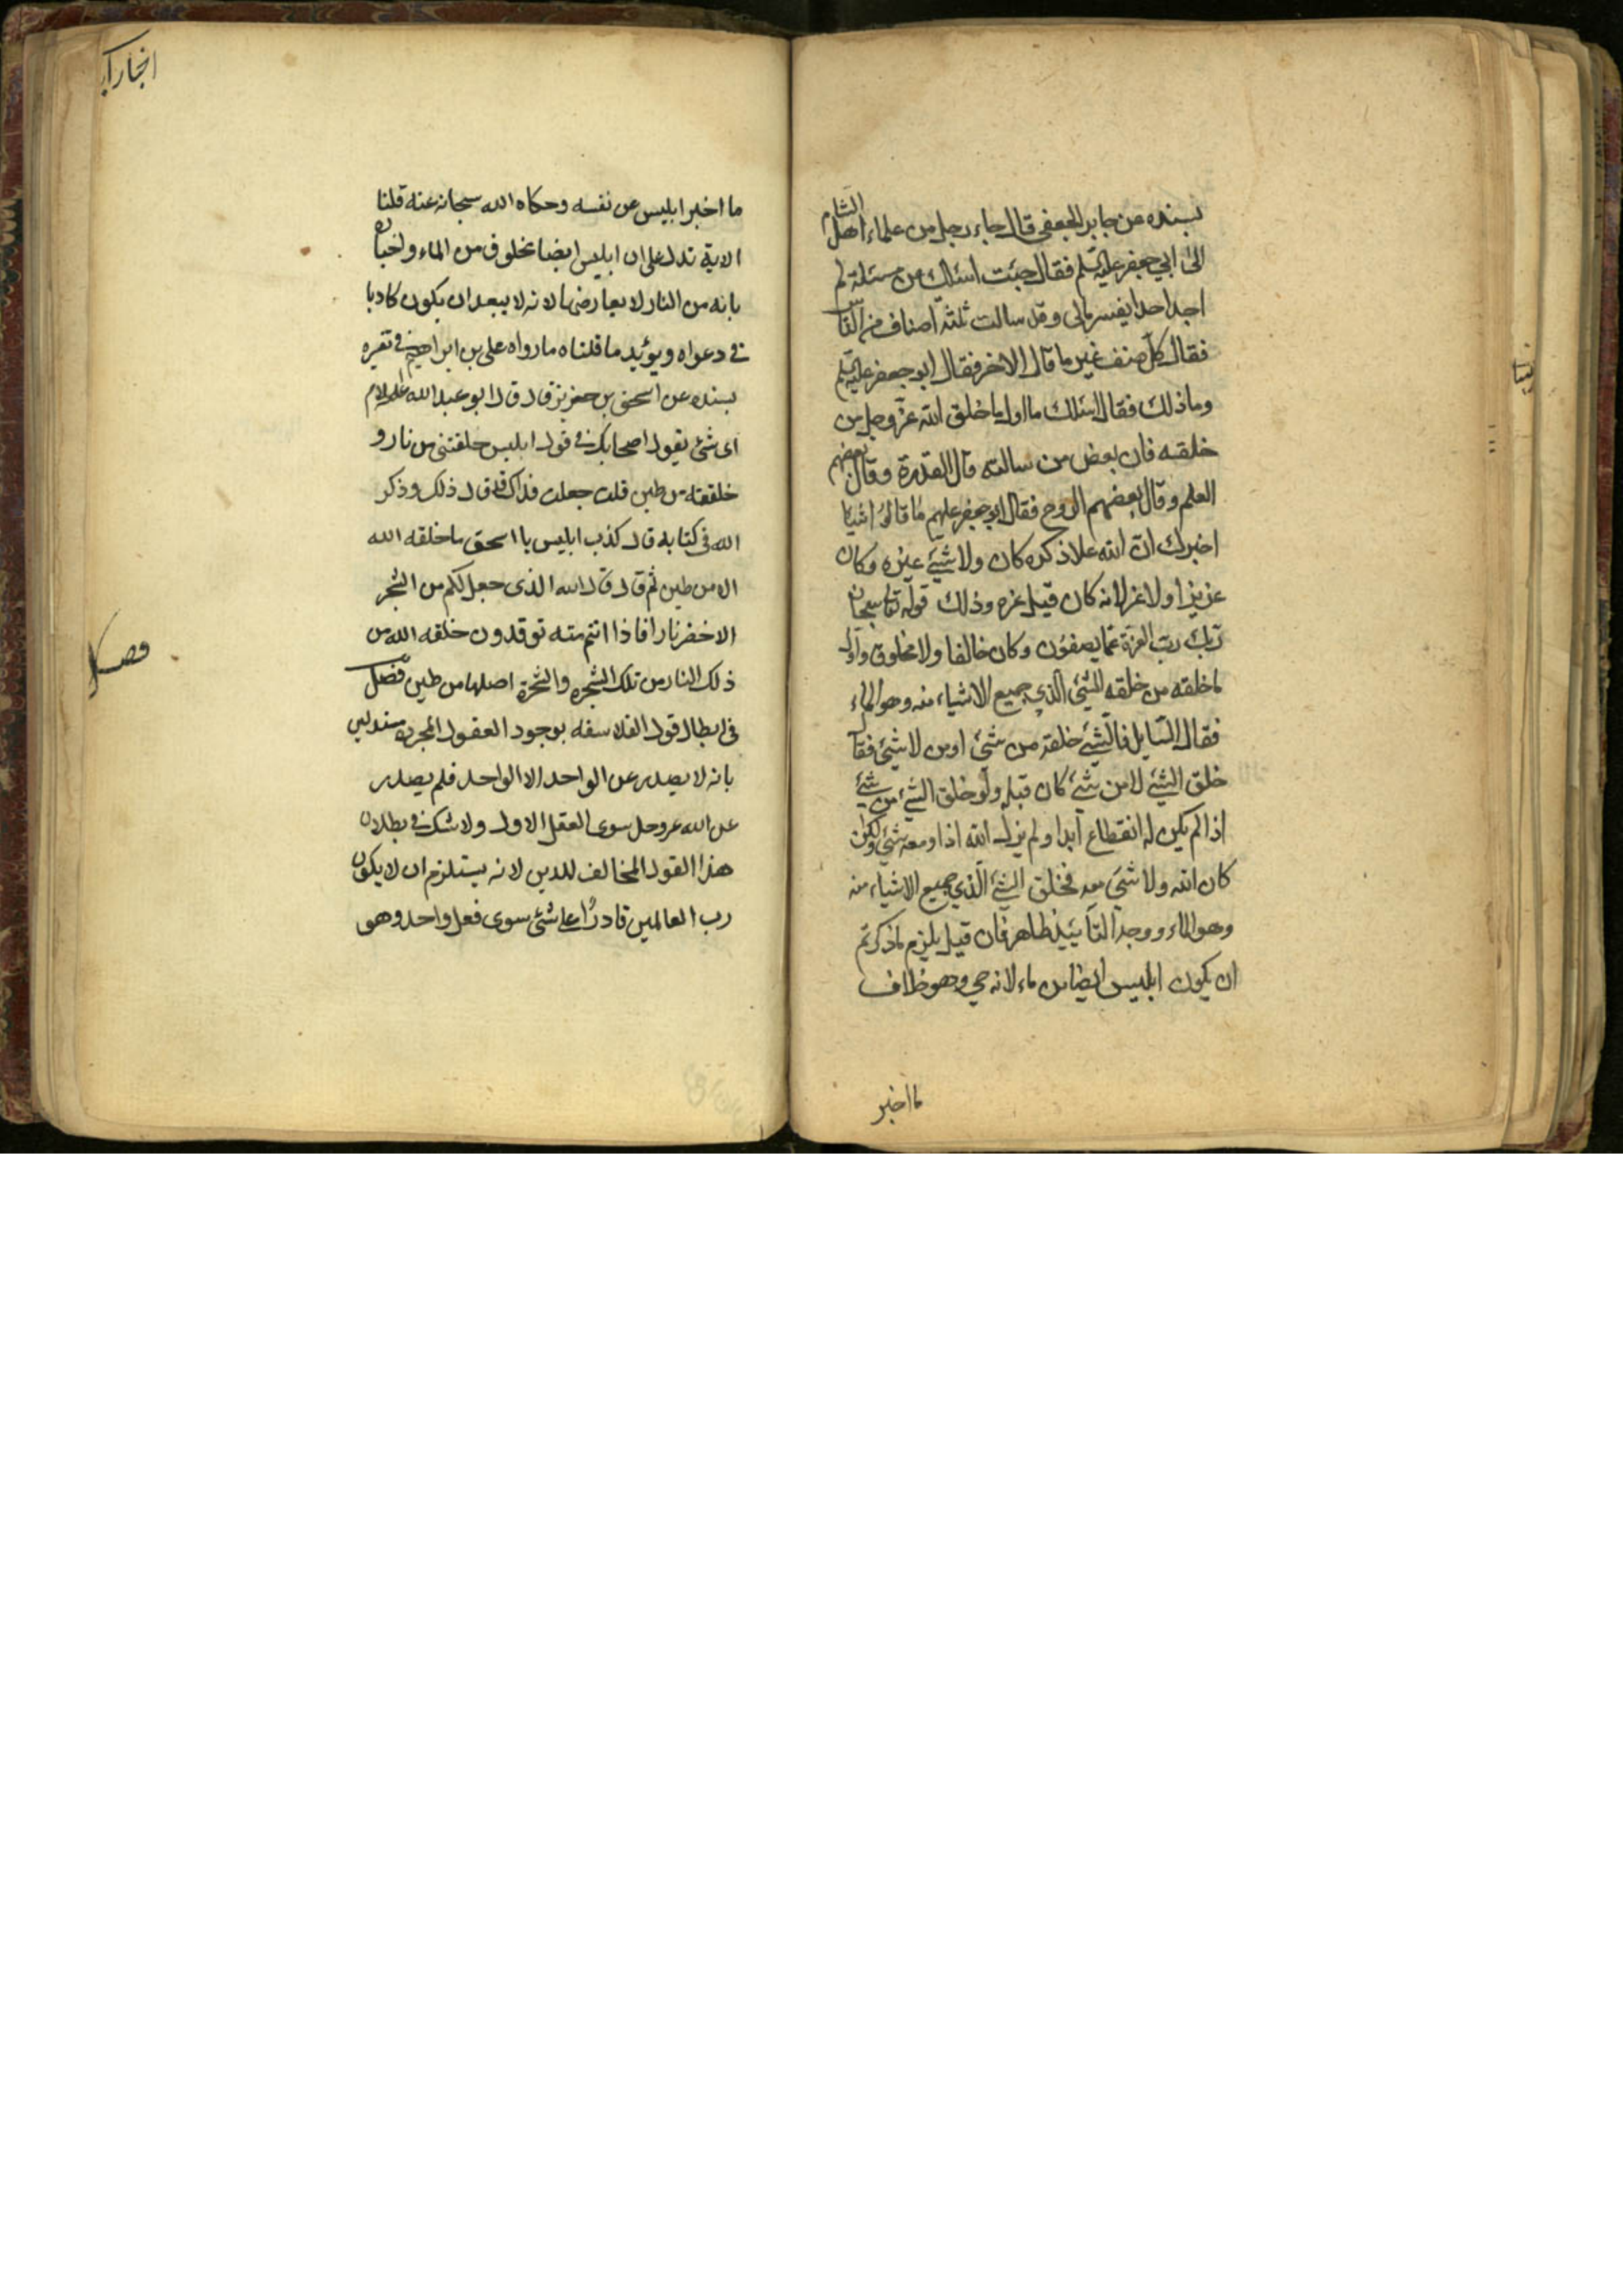 بسنده عن جابر الجعفي قال جاء رجل من علماء اهل الشام
الى ابي جعفر عليه السلم فقال جئت اسئلك عن مسئلة لم
اجد احدا يفسرها لي وقد سالت ثلثة اصناف من الناس
فقال كل صنف غير ما قال الاخر فقال ابو جعفر عليه السلم
وما ذلك فقال اسئلك ما اول ما خلق الله عز وجل من
خلقه فان بعض من سالته قال القدرة وقال بعضهم
العلم وقال بعضهم الروح فقال ابو جعفر عليهم ما قالوا شيئا
اخبرك ان الله علا ذكره كان ولا شيئ غيره وكان
عزيزا ولا عز لانه كان قبل عزه وذلك قوله تعا سبحان
ربك رب العزة عما يصفون وكان خالقا ولا مخلوق واول
ما خلقه من خلقه الشئ الذي جميع الاشياء منه وهو الماء
فقال السايل فالشيئ خلقه من شئ او من لا شئ فقا
خلق الشيئ لا من شيئ كان قبله ولو خلق الشئ من شيئ
اذا لم يكن له انقطاع ابدا ولم يزل الله اذا ومعه شئ ولكن
كان الله ولا شئ معه فخلق الشئ الذي جميع الاشياء منه
وهو الماء ووجد التأييد ظاهر فان قيل يلزم ما ذكرتم
ان يكون ابليس ايضا من ماء لانه حي وهو خلاف
ما اخبر
ما اخبر ابليس عن نفسه وحكاه الله سبحانه عنه قلنا
الاية تدل على ان ابليس ايضا مخلوق من الماء واخباره
بانه من النار لا يعارضها لانه لا يبعد ان يكون كاذبا
في دعواه ويؤيد ما قلناه ما رواه علي بن ابراهيم في تفيره
بسنده عن اسحق بن حريز قال قال ابو عبد الله عليه السلام
اى شئ يقول اصحابك في قول ابليس خلقتني من نار و
خلقته من طين قلت جعلت فداك قد قال ذلك وذكر
الله في كتابه قال كذب ابليس يا اسحق ما خلقه الله
الا من طين ثم قال قال الله الذى جعل لكم من الشجر
الاخضر نارا فاذا انتم منه توقدون خلقه الله من
ذلك النار من تلك الشجره والشجرة اصلها من طين فصل
في ابطال قول الفلاسفه بوجود العقول المجرده مستدلين
بانه لا يصدر عن الواحد الا الواحد فلم يصدر
عن الله عز وجل سوى العقل الاول ولا شك في بطلان
هذا القول المخالف للدين لانه يستلزم ان لا يكون
رب العالمين قادرًا على شئ سوى فعل واحد وهو
فصل